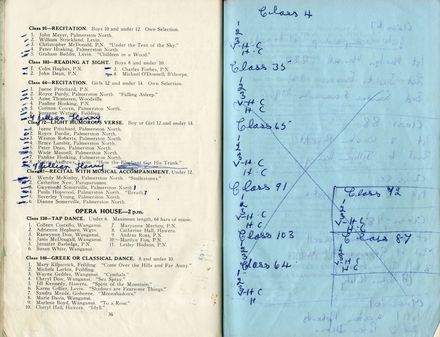 Class 95—RECITATION. Boys 10 and under 12. Own Selection.
1. John Mayer, Palmerston North.
2. William Strickland, Levin.
3. Christopher McDonald, P.N. "Under the Tent of the Sky."
4. Peter Hosking, Palmerston North.
5. Graham Beddie, Levin. "Children in a Wood."
Class 103—READING AT SIGHT. Boys 8 and under 10.
1. Colin Hughes, P.N. 3. Charles Forbes, P.N.
2. John Dean, P.N. 4. Michael O'Donnell, B'thorpe.
Class 64—RECITATION. Girls 12 and under 14. Own Selection.
1. Juene Pritchard, P.N.
2. Royce Purdy, Palmerston North. "Falling Asleep."
3. Anne Thomson, Woodville.
4. Pauline Hosking, P.N.
5. Corinne Cowen, Palmerston North.
Class 72—LIGHT HUMOROUS VERSE. Boy or Girl 12 and under 14.
1. Juene Pritchard, Palmerston North.
2. Royce Purdy, Palmerston North.
3. Weston Roberts, Palmerston North.
4. Bruce Lambie, Palmerston North.
5. Wade Mansell, Palmerston North.
6. Pauline Hosking, P.N.
Class 87—RECITAL WITH MUSICAL ACCOMPANIMENT. Under 16.
1. Wendy McKinley, Palmerston North.
2. Catherine New, Paraparaumu.
3. Gwynneth Somerville, Palmerston North.
4. Paula Hopwood, Palmerston North.
5. Beverley Young, Palmerston North.
6. Dianne Somerville, Palmerston North.
OPERA HOUSE—2 p.m.
Class 130—TAP DANCE. Under 8. Maximum length, 64 bars of music.
1. Colleen Costello, Wanganui. 7. Maryanne Mechen, P.N.
2. Adrienne Hepburn, Wgtn. 8. Catherine Hall, Hawera.
3. Raewynne Don, Wanganui. 9. Andrea Ross, P.N.
4. Janis McDonagh, Wanganui. 10. Marilyn Fox, P.N.
5. Jennifer Burbidge, P.N. 11. Lesley Hudson, P.N.
6. Susan White, Wanganui.
Class 146—GREEK OR CLASSICAL DANCE. 8 and under 10.
1. Mary Kilpatrick, Feilding. "Come Over the Hills and Far Away."
2. Michele Larkin, Feilding.
3. Wayne Geddes, Wanganui. "Cymbals."
4. Cheryl Dine, Wanganui. "Sea Spray."
5. Jill Kennedy, Hawera. "Spirit of the Mountain."
6. Karen Collier, Levin. "Shadows are Fearsome Things."
7. Sandra Meads, Gisborne. "Moonshadows."
8. Marie Davis, Wanganui.
9. Marlene Boyd, Wanganui. "To a Rose."
10. Cheryl Hall, Hawera. "Idyll."
36
Class 4
1
2
3
V-H-C
H-C
Class 35
1
2
3
V-H-C
H-C
Class 65
1
2
3
V-H-C
H-C
Class 91
1
V-H-C
H-C
Class 103
V-H-C
H-C
Class 64
1
2
3
V-H-C
H
Class 72
V-H-C
H-C
Class 87
V-H-C
H-C